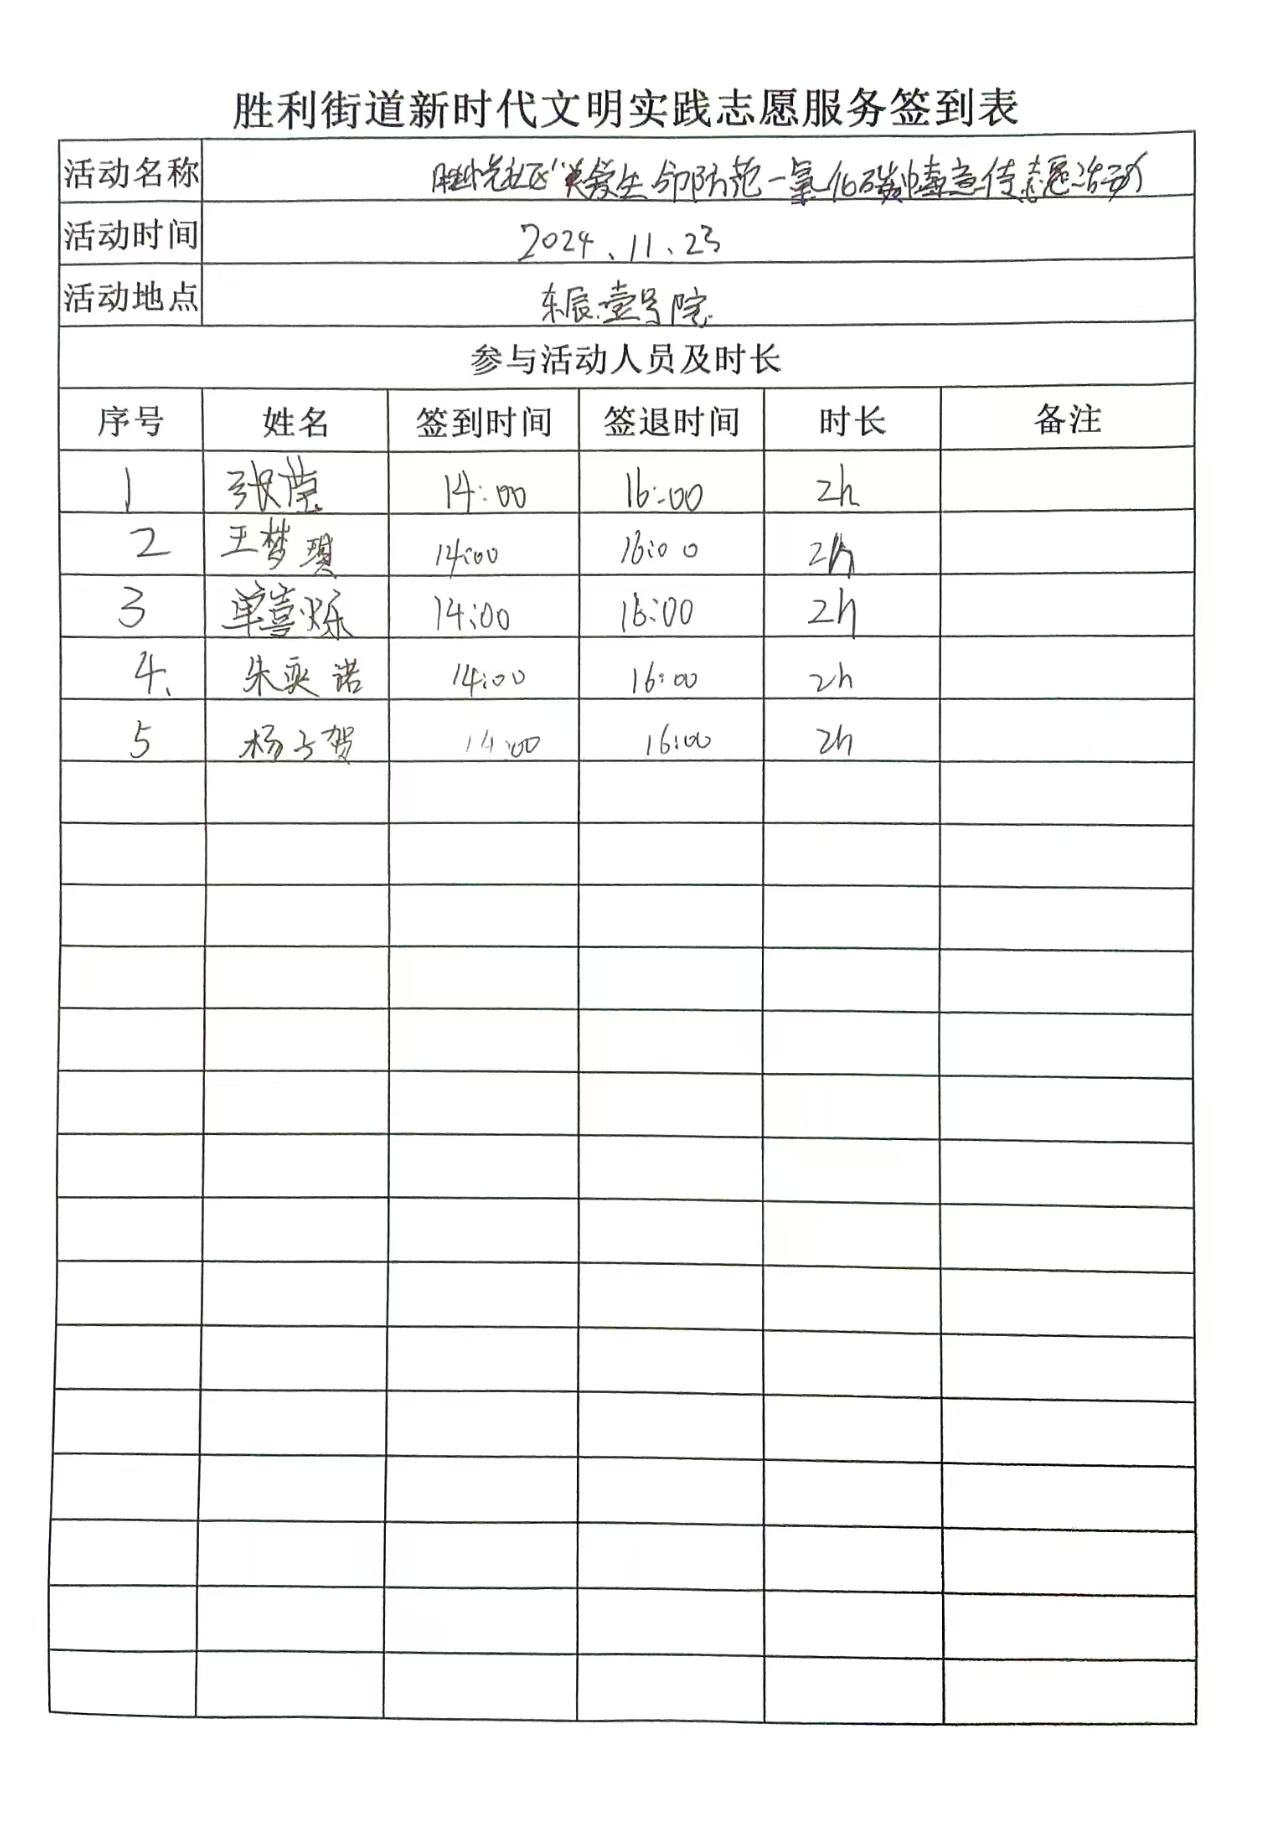 胜利街道新时代文明实践志愿服务签到表
活动名称 社区“关爱生命防范一氧化碳中毒宣传志愿活动
活动时间 2024、11、23
活动地点 东辰壹号院
参与活动人员及时长
序号 姓名 签到时间 签退时间 时长 备注
1 张莹 14:00 16:00 2h
2 王梦琪 14:00 16:00 2h
3 单喜烁 14:00 16:00 2h
4、 朱奕诺 14:00 16:00 2h
5 杨子贺 14:00 16:00 2h